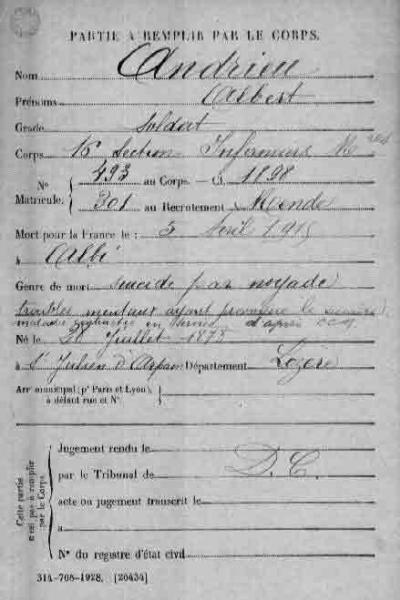 PARTIE A REMPLIR PAR LE CORPS.
Nom Andrieu
Prénoms Albert
Grade Soldat
Corps 16e Section Infirmiers Mres
N° Matricule. 493 au Corps. — Cl. 1898
301 au Recrutement Mende
Mort pour la France le : 5 Avril 1915
à Albi
Genre de mort suicide par noyade
troubles mentaux ayant provoqué le suicide
maladie contractée en service d'après
Né le 28 Juillet 1878
à St Julien d'Arpaon Département Lozère
Arrt municipal (pr Paris et Lyon),
à défaut rue et N°.
Cette partie
n'est pas à remplir
par le Corps.
Jugement rendu le
par le Tribunal de D. C.
acte ou jugement transcrit le
à
N° du registre d'état civil
314-708-1928. [26434]